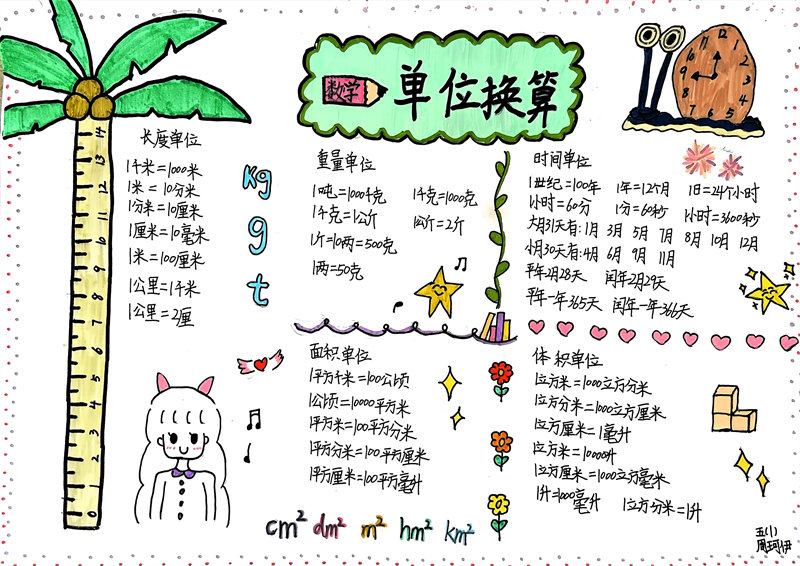 数学 单位换算
长度单位
1千米=1000米
1米=10分米
1分米=10厘米
1厘米=10毫米
1米=100厘米
1公里=1千米
1公里=2厘
14
13
12
11
10
9
8
7
6
5
4
3
2
1
0
kg
g
t
重量单位
1吨=1000千克 1千克=1000克
1千克=1公斤 1公斤=2斤
1斤=10两=500克
1两=50克
时间单位
1世纪=100年 1年=12个月 1日=24个小时
1小时=60分 1分=60秒 1小时=3600秒
大月31天有:1月 3月 5月 7月 8月 10月 12月
小月30天有:4月 6月 9月 11月
平年2月28天 闰年2月29天
平年一年365天 闰年一年366天
11 12 1
2
9 3
4
7 6 5
面积单位
1平方千米=100公顷
1公顷=10000平方米
1平方米=100平方分米
1平方分米=100平方厘米
1平方厘米=100平方毫升
体积单位
1立方米=1000立方分米
1立方分米=1000立方厘米
1立方厘米=1毫升
1立方米=1000升
1立方厘米=1000立方毫米
1升=1000毫升 1立方分米=1升
cm² dm² m² hm² km²
五(1)
周珂伊